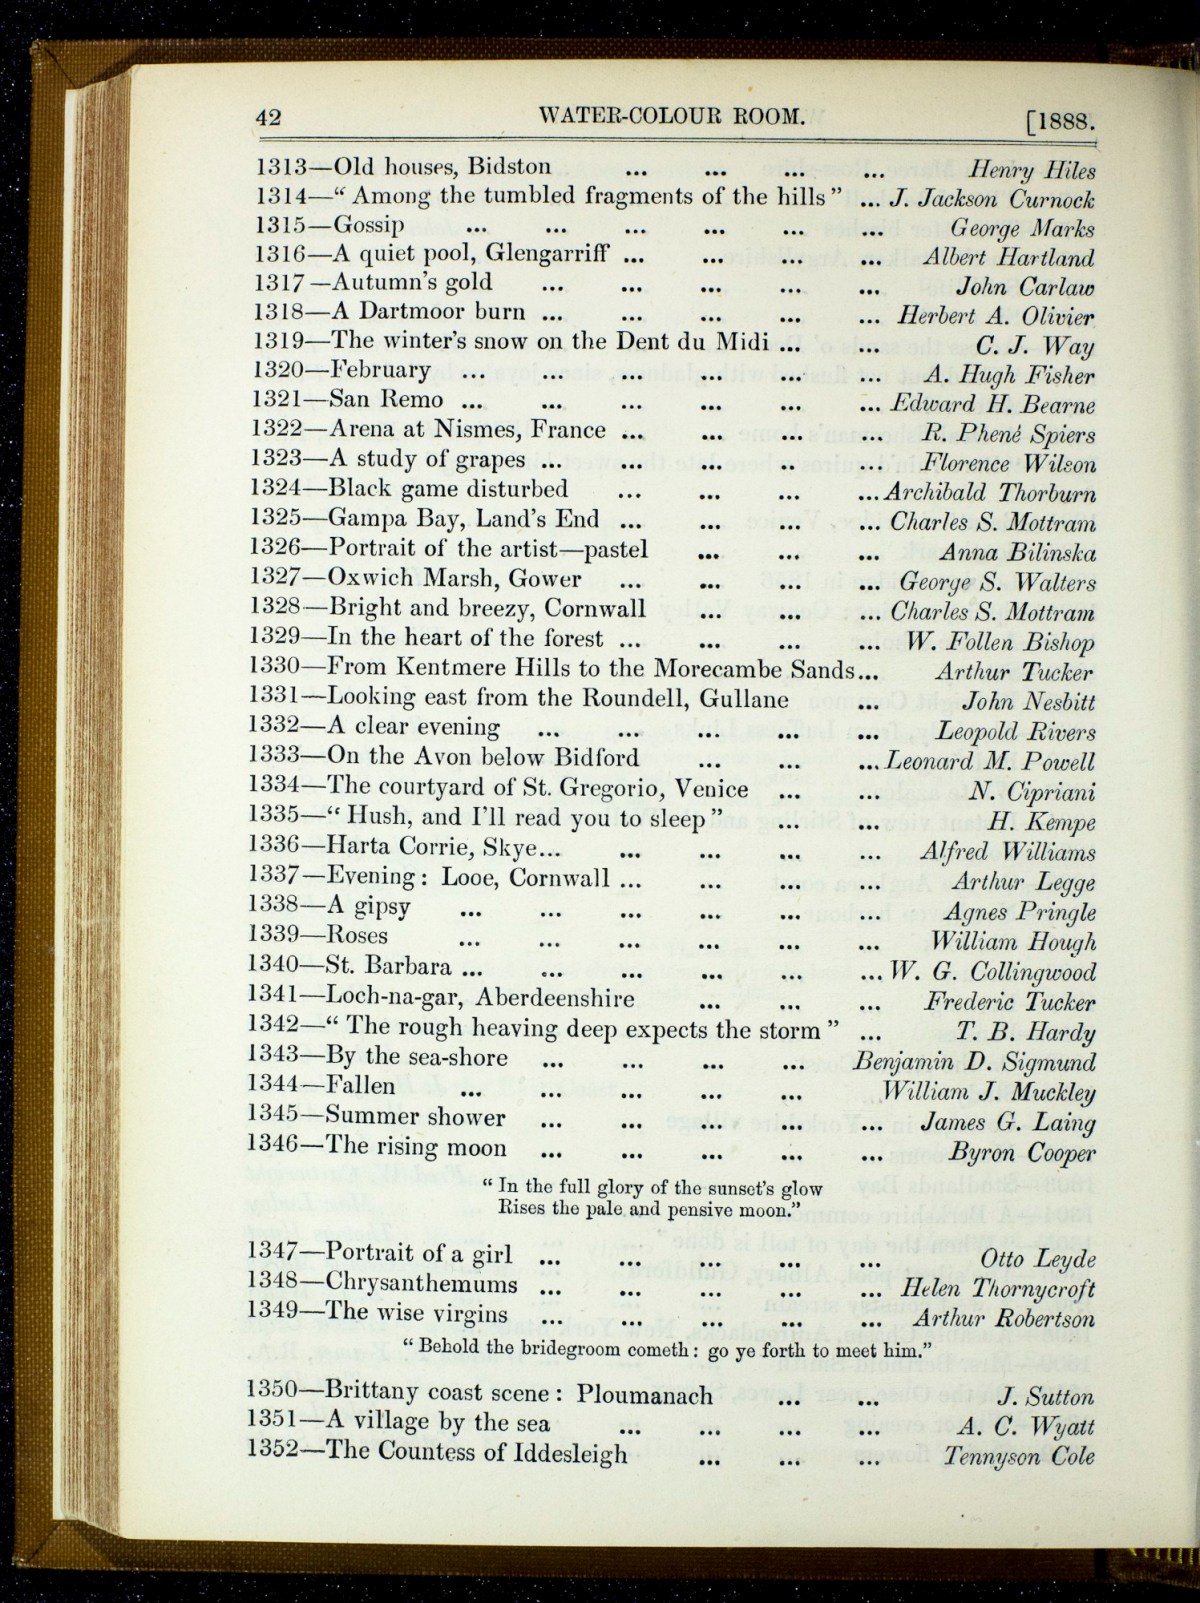 42 WATER-COLOUR ROOM. [1888.
1313—Old houses, Bidston ... ... ... ... Henry Hiles
1314—“ Among the tumbled fragments of the hills ” ... J. Jackson Curnock
1315—Gossip ... ... ... ... ... ... George Marks
1316—A quiet pool, Glengarriff ... ... ... ... Albert Hartland
1317—Autumn's gold ... ... ... ... ... John Carlaw
1318—A Dartmoor burn ... ... ... ... ... Herbert A. Olivier
1319—The winter's snow on the Dent du Midi ... ... C. J. Way
1320—February ... ... ... ... ... ... A. Hugh Fisher
1321—San Remo ... ... ... ... ... ... Edward H. Bearne
1322—Arena at Nismes, France ... ... ... ... R. Phené Spiers
1323—A study of grapes ... ... ... ... ... Florence Wilson
1324—Black game disturbed ... ... ... ... Archibald Thorburn
1325—Gampa Bay, Land's End ... ... ... ... Charles S. Mottram
1326—Portrait of the artist—pastel ... ... ... Anna Bilinska
1327—Oxwich Marsh, Gower ... ... ... ... George S. Walters
1328—Bright and breezy, Cornwall ... ... ... Charles S. Mottram
1329—In the heart of the forest ... ... ... ... W. Follen Bishop
1330—From Kentmere Hills to the Morecambe Sands... Arthur Tucker
1331—Looking east from the Roundell, Gullane ... John Nesbitt
1332—A clear evening ... ... ... ... ... Leopold Rivers
1333—On the Avon below Bidford ... ... ... Leonard M. Powell
1334—The courtyard of St. Gregorio, Venice ... ... N. Cipriani
1335—“ Hush, and I'll read you to sleep ” ... ... H. Kempe
1336—Harta Corrie, Skye... ... ... ... ... Alfred Williams
1337—Evening: Looe, Cornwall ... ... ... ... Arthur Legge
1338—A gipsy ... ... ... ... ... ... Agnes Pringle
1339—Roses ... ... ... ... ... ... William Hough
1340—St. Barbara ... ... ... ... ... ... W. G. Collingwood
1341—Loch-na-gar, Aberdeenshire ... ... ... Frederic Tucker
1342—“ The rough heaving deep expects the storm ” ... T. B. Hardy
1343—By the sea-shore ... ... ... ... Benjamin D. Sigmund
1344—Fallen ... ... ... ... ... William J. Muckley
1345—Summer shower ... ... ... ... ... James G. Laing
1346—The rising moon ... ... ... ... ... Byron Cooper
“ In the full glory of the sunset's glow
Rises the pale and pensive moon.”
1347—Portrait of a girl ... ... ... ... ... Otto Leyde
1348—Chrysanthemums ... ... ... ... ... Helen Thornycroft
1349—The wise virgins ... ... ... ... ... Arthur Robertson
“ Behold the bridegroom cometh: go ye forth to meet him.”
1350—Brittany coast scene: Ploumanach ... ... J. Sutton
1351—A village by the sea ... ... ... ... A. C. Wyatt
1352—The Countess of Iddesleigh ... ... ... Tennyson Cole